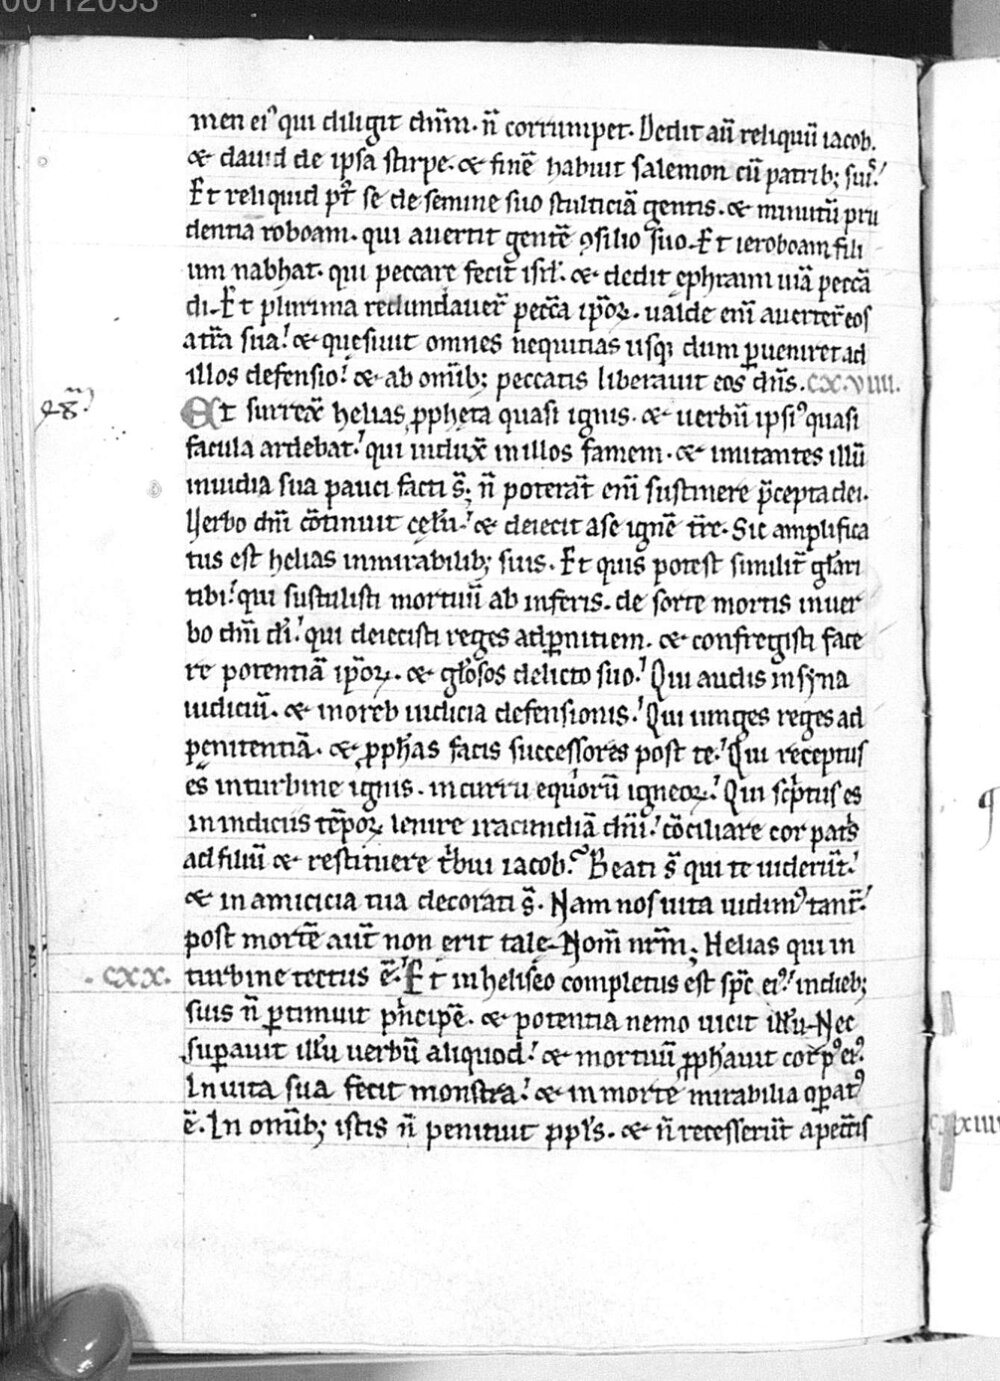 00112053
men ei᾽ qui diligit dñm. ñ corrumpet. Dedit aũ reliquũ iacob.
⁊ dauid de ipsa stirpe. ⁊ finẽ habuit salemon cũ patrib; suis.
Et reliquid pt̃ se de semine suo stulticiã gentis. ⁊ minutũ pru
dentia roboam. qui auertit gentẽ ꝯsilio suo. Et ieroboam fili
um nabhat. qui peccare fecit isrl̃. ⁊ dedit ephraim uiã peccã
di. Et plurima redundauer̃ peccã ip̃oꝝ. ualde eni᷒ auerter̃ eos
a tr̃a sua. ⁊ quęsiuit omnes nequitias usq; dum ꝑueniret ad
illos defensio. ⁊ ab om̃ib; peccatis liberauit eos dñs. cx.viiii.
Et surrex̃ helias ꝓpheta quasi ignis. ⁊ uerbũ ipsi᾽ quasi
facula ardebat. qui indux̃ in illos famem. ⁊ imitantes illũ
inuidia sua pauci facti s̃; ñ poterãt eni᷒ sustinere p̃cepta dei.
Verbo dñi cõtinuit cęlũ. ⁊ deiecit a se ignẽ tr̃e. Sic amplifica
tus est helias in mirabilib; suis. Et quis potest similit̃ gl̃ari
tibi. qui sustulisti mortuũ ab inferis. de sorte mortis in uer
bo dñi dĩ. qui deiecisti reges ad ꝑnitiem. ⁊ confregisti face
re potentiã ip̃oꝝ. ⁊ gl̃osos delicto suo. Qui audis in syna
iudiciũ. ⁊ in oreb iudicia defensionis. Qui unges reges ad
penitentiã. ⁊ ꝓph̃as facis successores post te. Qui receptus
es in turbine ignis. in curru equorũ igneoꝝ. Qui sc̃ptus es
in indiciis tẽpoꝝ lenire iracundiã dñi. cõciliare cor patris
ad filiũ ⁊ restituere tribui iacob. Beati s̃ qui te uiderũt.
⁊ in amicicia tua decorati s̃. Nam nos uita uidim᾽ tant̃.
post mortẽ aut̃ non erit tale. Nom̃ nr̃m; Helias qui in
.cxx. turbine tectus ẽ. Et in heliseo completus est sp̃c ei᾽. in dieb;
suis ñ ꝑtimuit p̃ncipẽ. ⁊ potentia nemo uicit illũ. Nec
suꝑauit illũ uerbũ aliquod. ⁊ mortuũ ꝓph̃auit corp᾽ ei᾽.
In uita sua fecit monstra. ⁊ in morte mirabilia oꝑat᾽
ẽ. In om̃ib; istis ñ penituit ppl̃s. ⁊ ñ recesserũt a pecc̃is